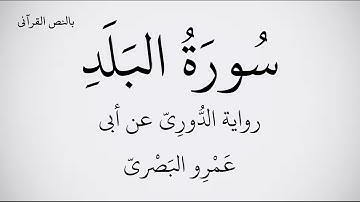 بالنص القرآنى
سُورَةُ البَلَدِ
رواية الدُّورِىّ عن أبى
عَمْرِو البَصْرِىّ